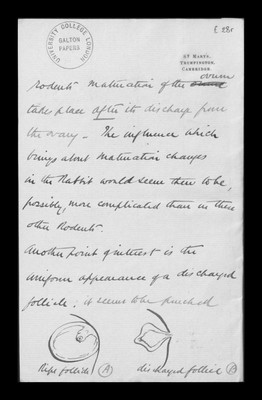 UNIVERSITY COLLEGE LONDON
GALTON
PAPERS
E 28r
ST MARYS,
TRUMPINGTON,
CAMBRIDGE.
ovum
Rodents maturation of the
takes place after its discharge from
the ovary - The influence which
brings about maturation changes
in the Rabbit would seem then to be,
possibly, more complicated than in these
other Rodents.
Another point of interest is the
uniform appearance of a discharged
follicle; it seems to be punched
Ripe follicle (A)
discharged follicle (B)